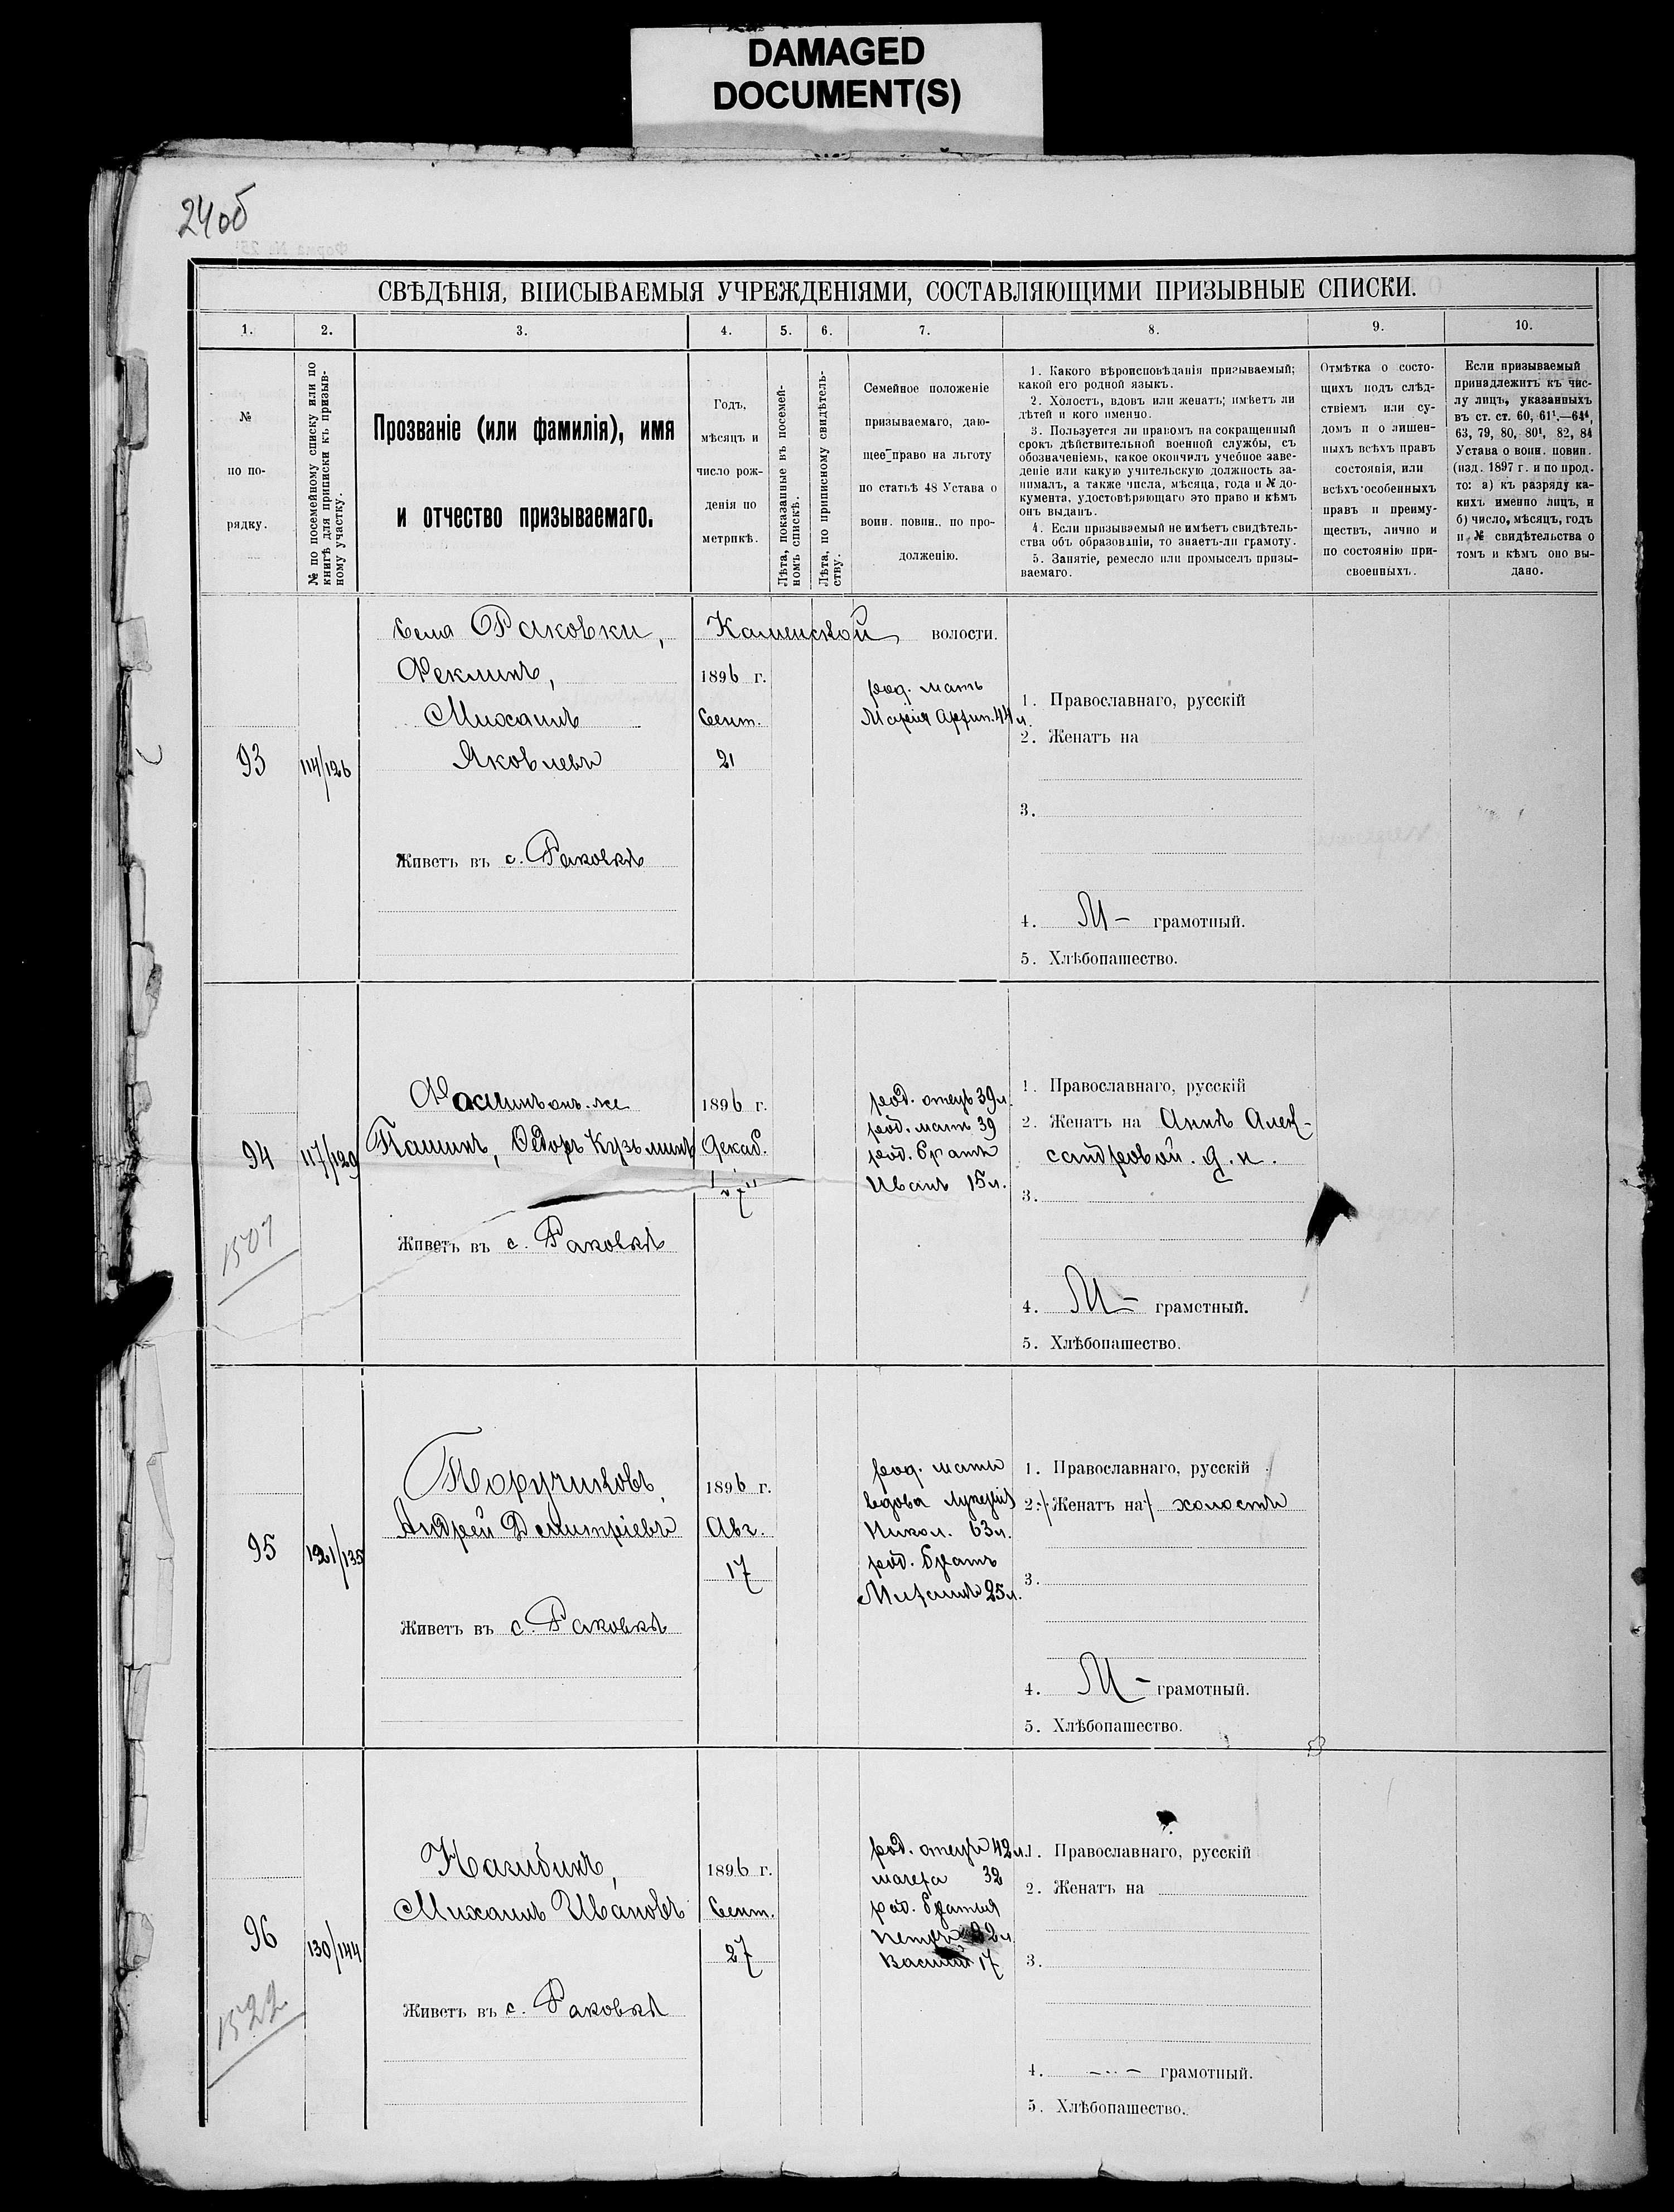 DAMAGED
DOCUMENT(S)
24об
СВѢДѢНІЯ, ВПИСЫВАЕМЫЯ УЧРЕЖДЕНІЯМИ, СОСТАВЛЯЮЩИМИ ПРИЗЫВНЫЕ СПИСКИ.
1. 2. 3. 4. 5. 6. 7. 8. 9. 10.
№
по по-
рядку.
№ по посемейному списку или по
книгѣ для приписки къ призыв-
ному участку.
Прозваніе (или фамилія), имя
и отчество призываемаго.
Годъ,
мѣсяцъ и
число рож-
денія по
метрикѣ.
Лѣта, показанные въ посемей-
номъ спискѣ.
Лѣта, по приписному свидѣтель-
ству.
Семейное положеніе
призываемаго, даю-
щее право на льготу
по статьѣ 48 Устава о
воин. повин., по про-
долженію.
1. Какого вѣроисповѣданія призываемый;
какой его родной языкъ.
2. Холостъ, вдовъ или женатъ; имѣетъ ли
дѣтей и кого именно.
3. Пользуется ли правомъ на сокращенный
срокъ дѣйствительной военной службы, съ
обозначеніемъ, какое окончилъ учебное заве-
деніе или какую учительскую должность за-
нималъ, а также числа, мѣсяца, года и № до-
кумента, удостовѣряющаго это право и кѣмъ
онъ выданъ.
4. Если призываемый не имѣетъ свидѣтель-
ства объ образованіи, то знаетъ-ли грамоту.
5. Занятіе, ремесло или промыселъ призы-
ваемаго.
Отмѣтка о состо-
щихъ подъ слѣд-
ствіемъ или су-
домъ и о лишен-
ныхъ всѣхъ правъ
состоянія, или
всѣхъ особенныхъ
правъ и преиму-
ществъ, лично и
по состоянію при-
своенныхъ.
Если призываемый
принадлежитъ къ чис-
лу лицъ, указанныхъ
въ ст. ст. 60, 61¹.—64⁴,
63, 79, 80, 80¹, 82, 84
Устава о воин. повин.
(изд. 1897 г. и по прод.
то: а) къ разряду ка-
кихъ именно лицъ, и
б) число, мѣсяцъ, годъ
и № свидѣтельства о
томъ и кѣмъ оно вы-
дано.
Села Раковки, Каменской волости.
93
114/126
Феклинъ,
Михаилъ
Яковлевъ
Живетъ въ с. Раковкѣ
1896 г.
Сент.
21
род. мать
Марія 44 л.
1. Православнаго, русскій
2. Женатъ на
3.
4. М— грамотный.
5. Хлѣбопашество.
94
117/129
1501
онъ-же
Пашинъ, Ѳедоръ Кузьминъ
Живетъ въ с. Раковкѣ
1896 г.
Декаб.
род. отецъ 39 л.
род. мать 39
род. братъ
Иванъ 15 л.
1. Православнаго, русскій
2. Женатъ на Аннѣ Алек-
сандровой.
3.
4. М— грамотный.
5. Хлѣбопашество.
95
121/135
Поручиковъ,
Андрей Дмитріевъ
Живетъ въ с. Раковкѣ
1896 г.
Авг.
17
род. мать
вдова
Никол. 63 л.
род. братъ
Михаилъ 25 л.
1. Православнаго, русскій
2. Женатъ на холостъ
3.
4. М— грамотный.
5. Хлѣбопашество.
96
130/144
1522
Нагибинъ,
Михаилъ Ивановъ
Живетъ въ с. Раковкѣ
1896 г.
Сент.
27
род. отецъ 42 л.
мачеха 32
род. братья
Петръ
Василій 17
1. Православнаго, русскій
2. Женатъ на
3.
4. грамотный.
5. Хлѣбопашество.